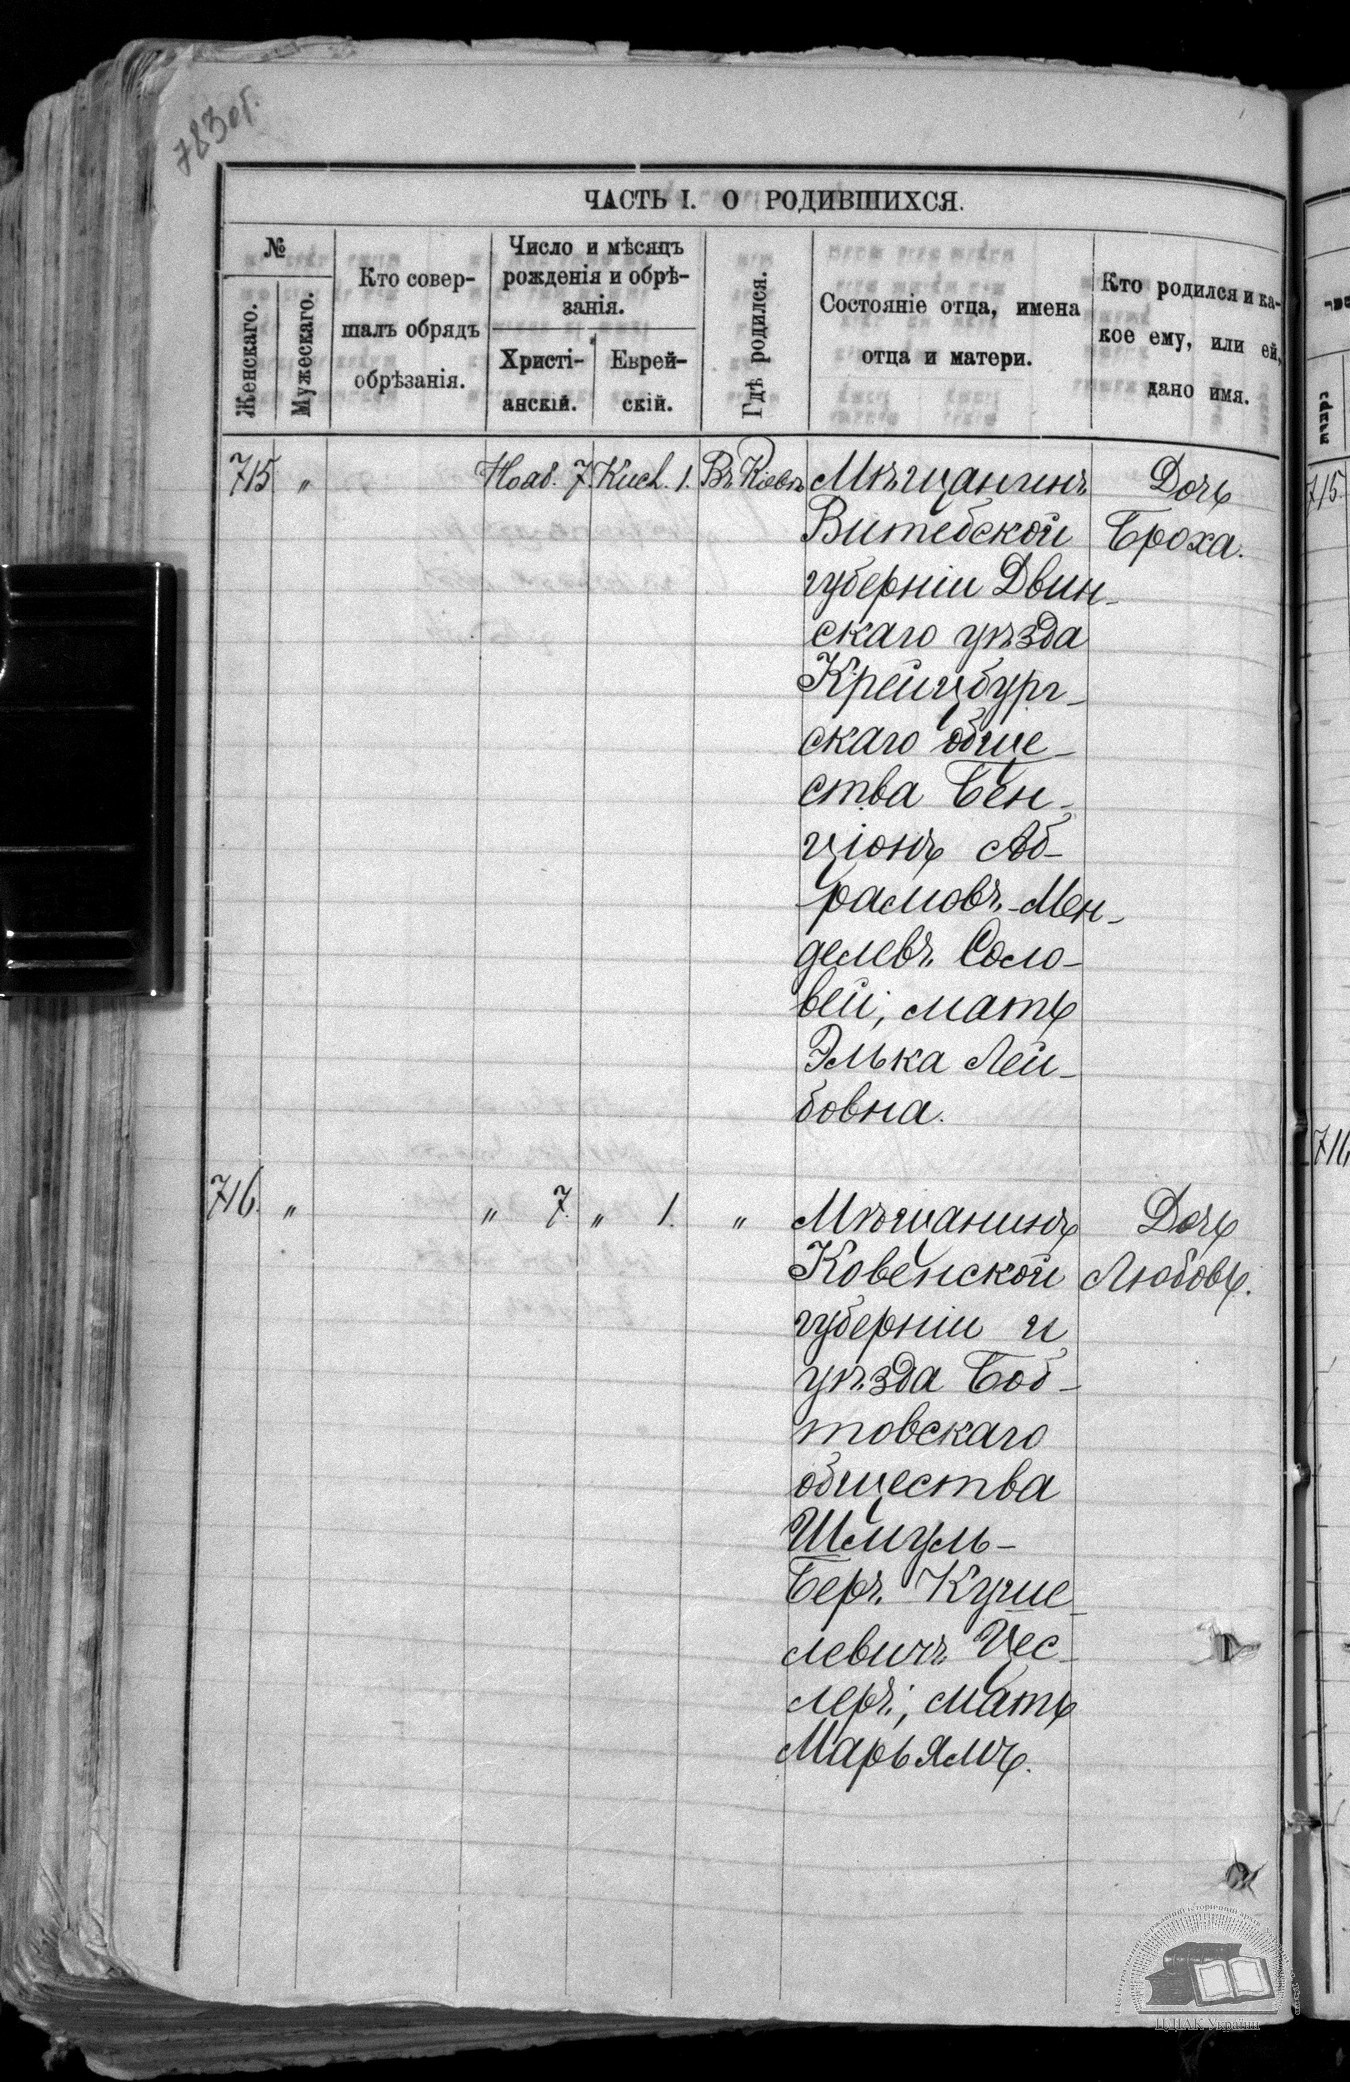 783 об.
ЧАСТЬ I. О РОДИВШИХСЯ.
№
Женскаго.
Мужескаго.
Кто совер-
шалъ обрядъ
обрѣзанія.
Число и мѣсяцъ
рожденія и обрѣ-
занія.
Христі-
анскій.
Еврей-
скій.
Гдѣ родился.
Состояніе отца, имена
отца и матери.
Кто родился и ка-
кое ему, или ей,
дано имя.
715 „ Нояб. 7. Кисл. 1. Въ Кіевѣ Мѣщанинъ Дочь
Витебской Броха.
губерніи Двин-
скаго уѣзда
Крейцбург-
скаго обще-
ства Бен-
ціонъ Аб-
рамовъ-Мен-
делевъ Соло-
вей, мать
Элька Лей-
бовна.
716. „ „ 7. „ 1. „ Мѣщанинъ Дочь
Ковенской Любовь.
губерніи и
уѣзда Боб-
товскаго
общества
Шмуль-
Беръ Куше-
левичъ Цес-
леръ, мать
Марьямъ.
715
716
ЦДІАК України